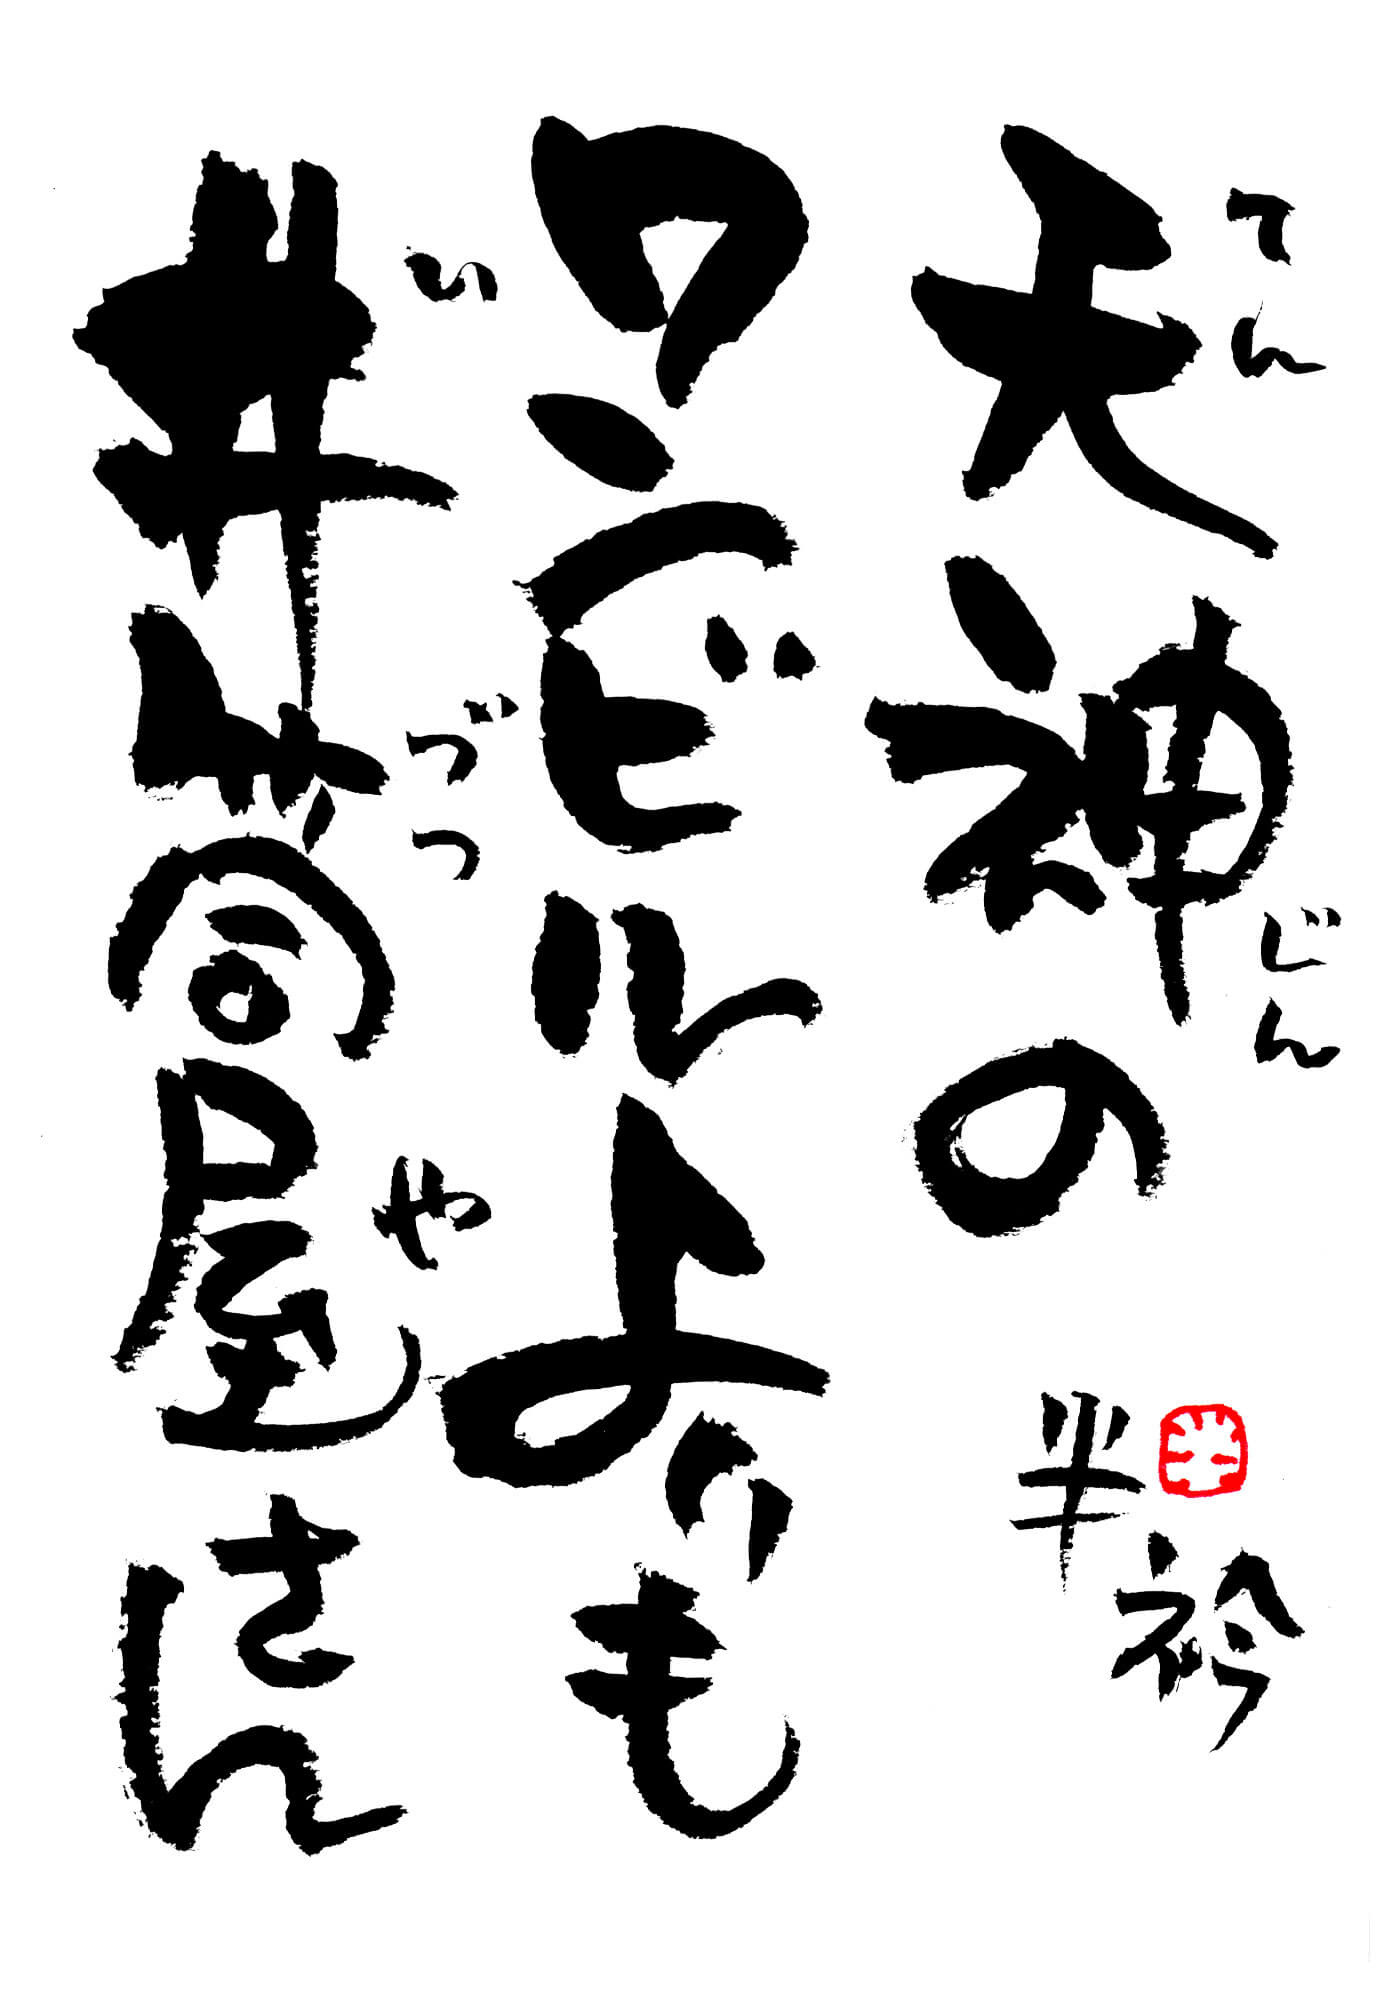 天神の
てんじん
ワンビルよりも
井筒屋さん
いづつや
半衿